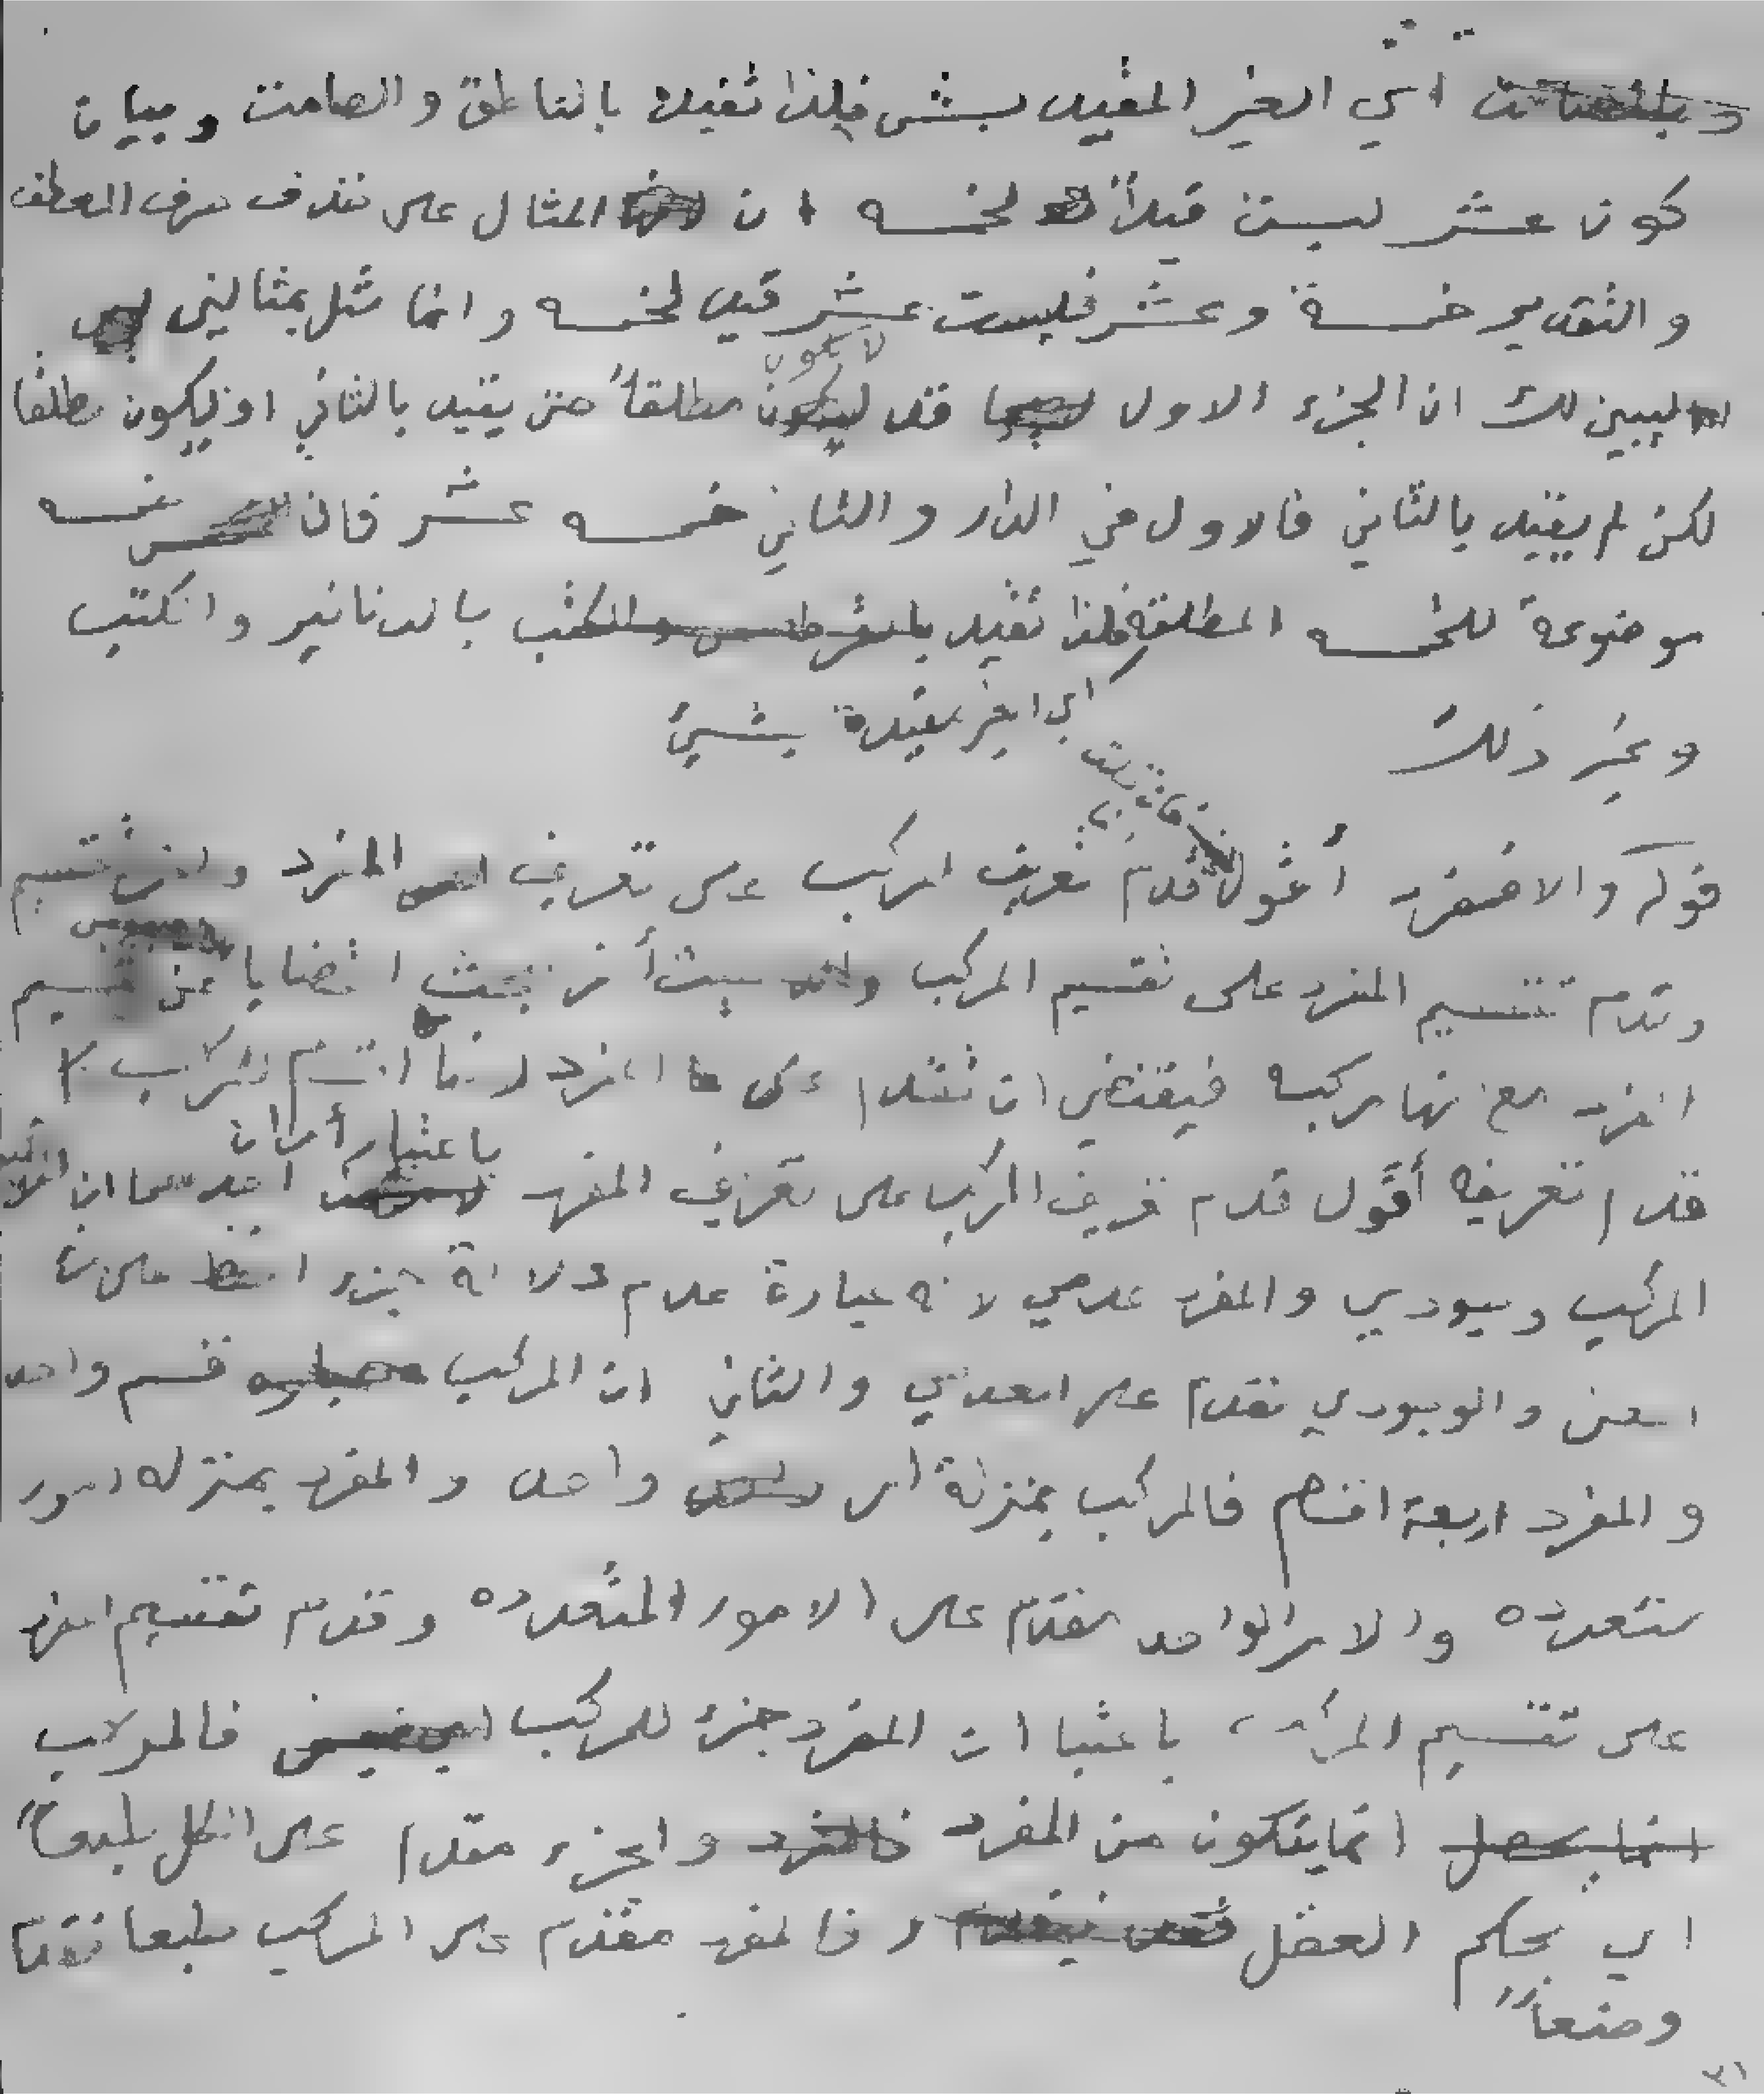 اي الغير المقيد بشى فلذا تقيد بالناطق والصامت وبيان
كون عشر ليست قيداً لخمسه ان المثال على حذف حرف العطف
والتقدير خمسة وعشر فليست عشر قيد لخمسه وانما مثل بمثالين
ليبين لك ان الجزء الاول قد لا يكون مطلقاً حتى يقيد بالثاني او يكون مطلقا
لكن لم يقيد بالثاني فالاول في الدار والثاني خمسه عشر فان خمسه
موضوعة للخمسه المطلقة فلذا تقيد بالدنانير والكتب
اي الغير مقيدة بشيئ
وغير ذلك
فان قلت
قوله والا فمفرد أقول قدم تعريف المركب على تعريف المفرد
وقدم تقسيم المفرد على تقسيم المركب القضايا عن تقسيم
المفرد مع انها مركبه فيقتضي ان تقدم على المفرد
قدم تعريفه أقول قدم تعريف المركب على تعريف المفرد باعتبار أمران احدهما ان
المركب وجودي والمفرد عدمي لانه عبارة عدم دلالة جزء اللفظ على
المعنى والوجودي مقدم على العدمي والثاني ان المركب قسم واحد
والمفرد اربعة اقسام فالمركب بمنزلة امر واحد والمفرد بمنزله امور
متعدده والامر الواحد مقدم على الامور المتعدده وقدم تقسيم المفرد
على تقسيم المركب باعتبا ان المفرد جزء للمركب فالمركب
انما يتكون من المفرد والجزء مقدم على الكل طبعاً
اي بحكم العقل فالمفرد مقدم على المركب طبعا فقدم
وضعاً
٣١